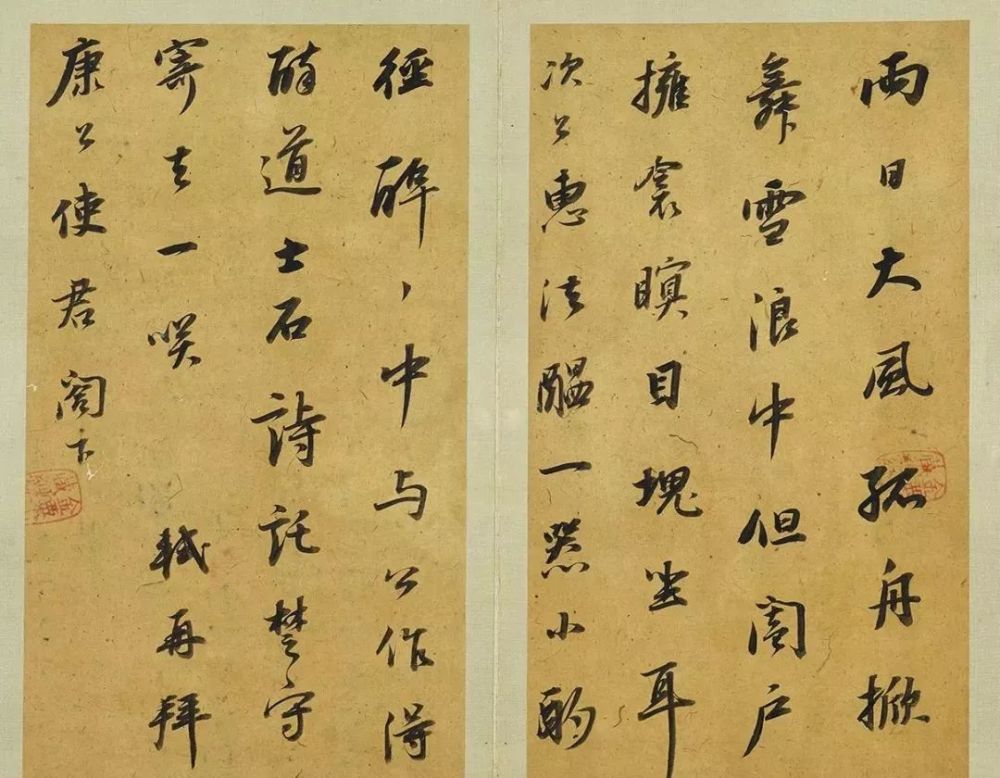 兩日大風孤舟掀
舞雪浪中但闔戶
擁衾瞑目塊坐耳
次公惠法醞一器小酌
徑醉、中與公作得
醉道士石詩託楚守
寄去一咲
軾再拜
康公使君閤下